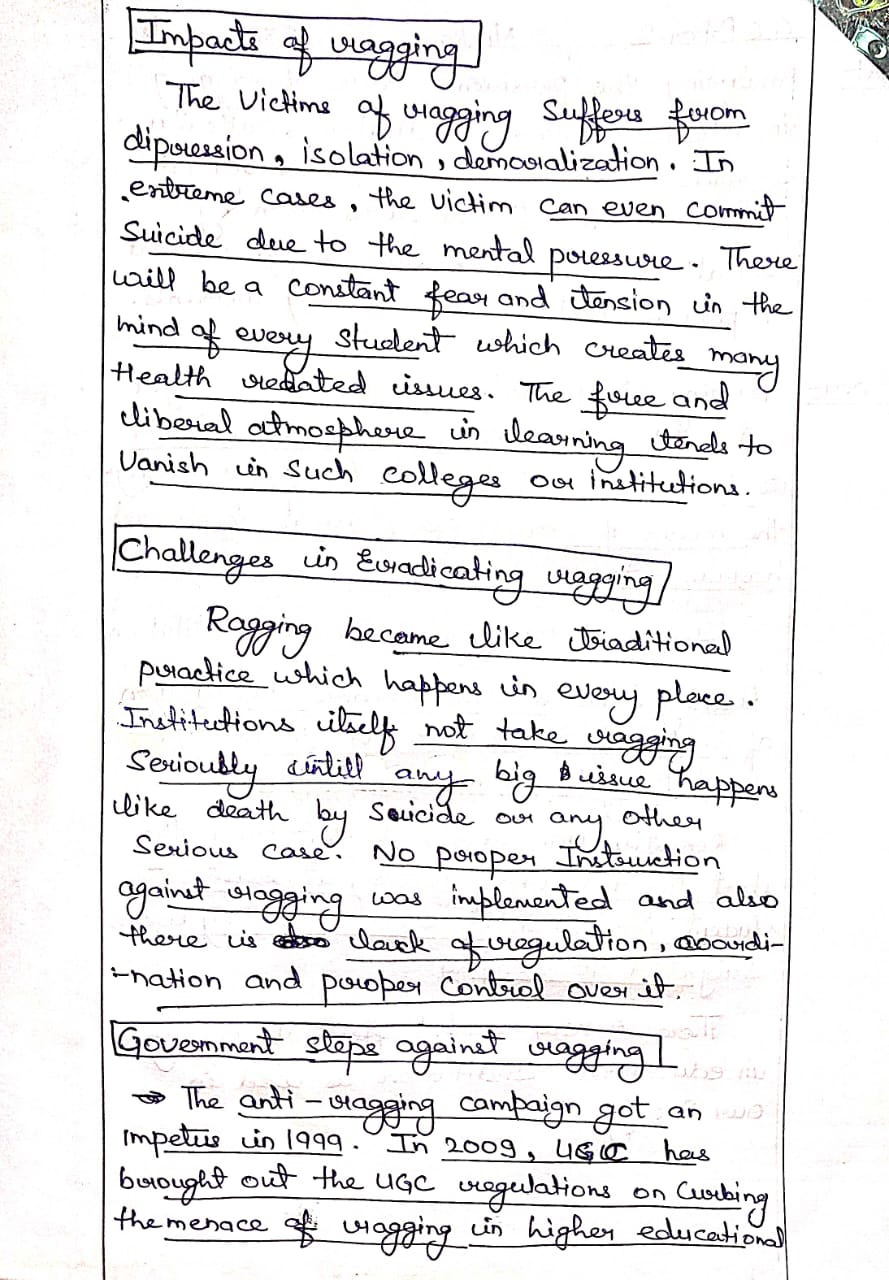 Impacts of ragging
The Victims of ragging Suffers from
dipression, isolation, demoralization. In
extreme cases, the victim can even commit
Suicide due to the mental pressure. There
will be a constant fear and tension in the
mind of every student which creates many
Health related issues. The free and
liberal atmosphere in learning tends to
Vanish in Such colleges or institutions.
Challenges in Eradicating ragging
Ragging became like traditional
practice which happens in every place.
Institutions itself not take ragging
Seriously untill any big issue happens
like death by Suicide or any other
Serious case. No proper Instruction
against ragging was implemented and also
there is lack of regulation, coordi-
-nation and proper control over it.
Government steps against ragging
⇒ The anti-ragging campaign got an
Impetus in 1999. In 2009, UGC has
brought out the UGC regulations on Curbing
the menace of ragging in higher educational